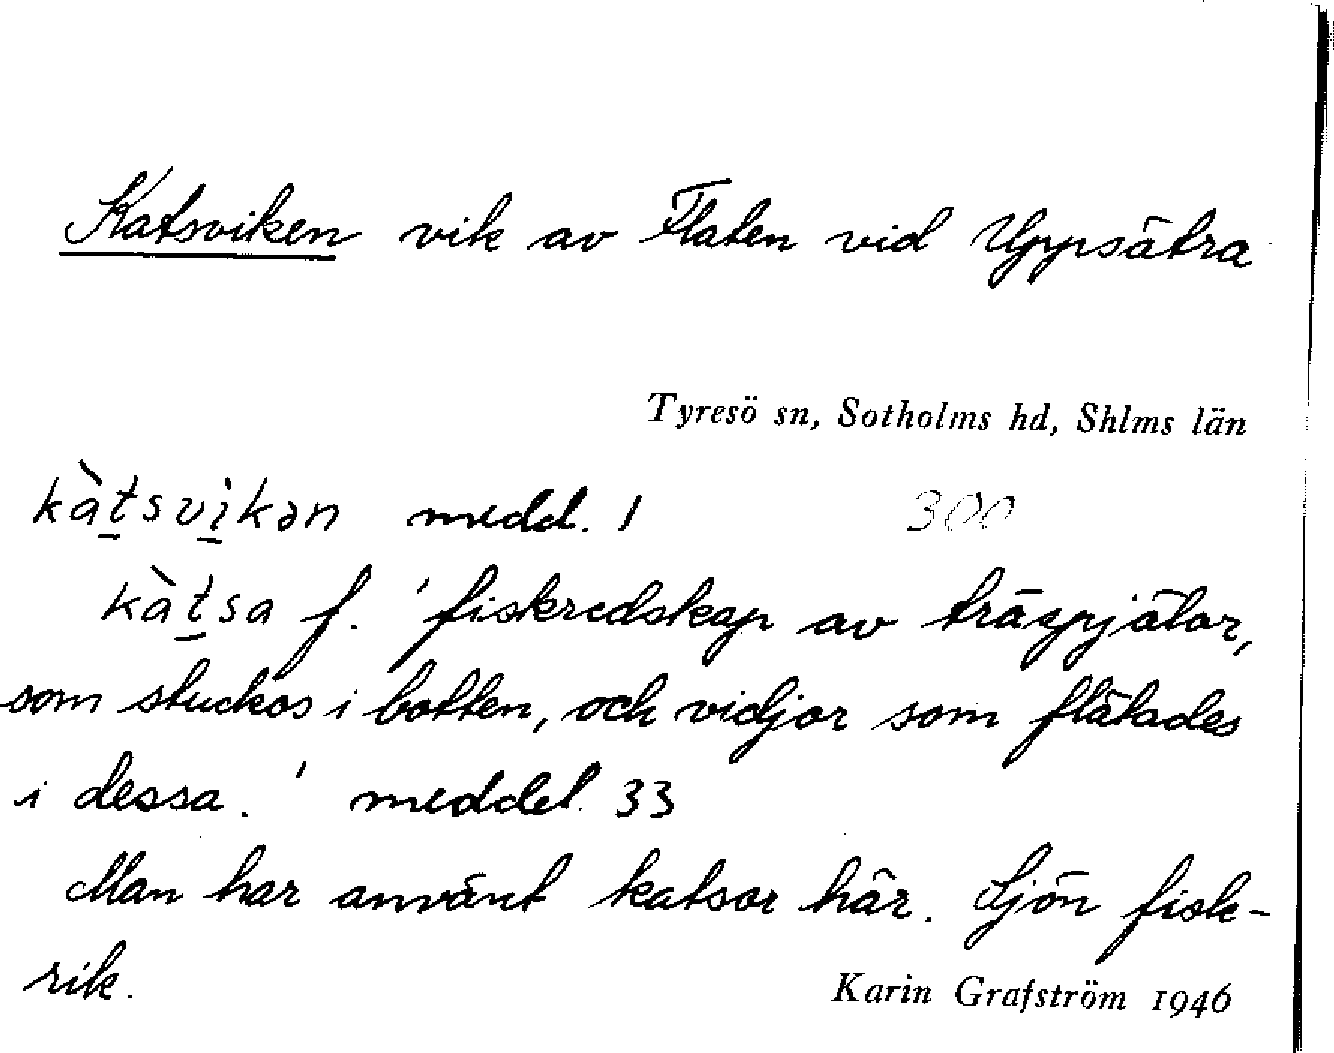 Katsviken vik av Flaten vid Uppsätra
Tyresö sn, Sotholms hd, Shlms län
kàt̠svi̠kən medd. 1 300
kàt̠sa f. 'fiskredskap av träspjälor,
som stuckos i botten, och vidjor som flätades
i dessa.' meddel. 33
Man har använt katsor här. Sjön fisk-
rik.
Karin Grafström 1946